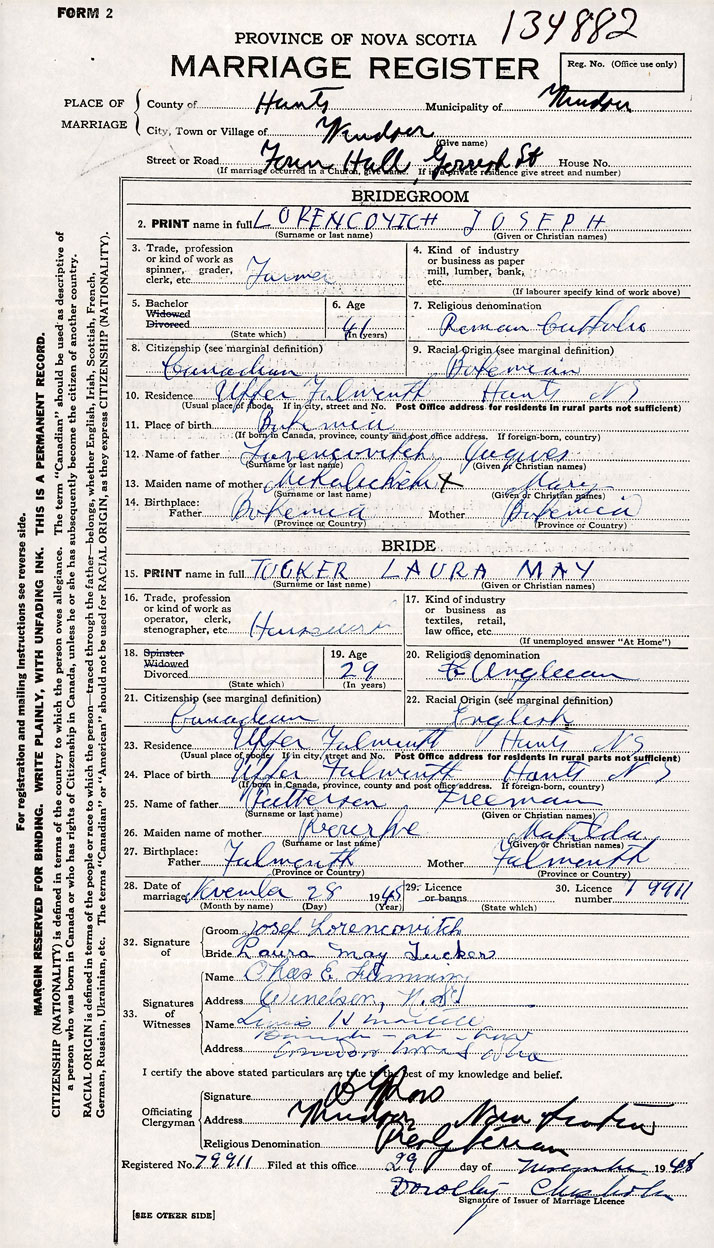 FORM 2
134882
PROVINCE OF NOVA SCOTIA
MARRIAGE REGISTER
Reg. No. (Office use only)
PLACE OF MARRIAGE
County of Hants Municipality of Windsor
City, Town or Village of Windsor
(Give name)
Street or Road Town Hall, Gerrish St House No.
(If marriage occurred in a Church, give name. If in a private residence give street and number)
BRIDEGROOM
2. PRINT name in full LORENCOVICH JOSEPH
(Surname or last name) (Given or Christian names)
3. Trade, profession or kind of work as spinner, grader, clerk, etc. Farmer
4. Kind of industry or business as paper mill, lumber, bank, etc.
(If labourer specify kind of work above)
5. Bachelor Widowed Divorced
(State which)
6. Age 41
(In years)
7. Religious denomination
Roman Catholic
8. Citizenship (see marginal definition)
Canadian
9. Racial Origin (see marginal definition)
Bohemian
10. Residence Upper Falmouth Hants NS
(Usual place of abode. If in city, street and No. Post Office address for residents in rural parts not sufficient)
11. Place of birth Bohemia
(If born in Canada, province, county and post office address. If foreign-born, country)
12. Name of father Lorencovitch
(Surname or last name) (Given or Christian names)
13. Maiden name of mother X Mary
(Surname or last name) (Given or Christian names)
14. Birthplace: Father Bohemia Mother Bohemia
(Province or Country) (Province or Country)
BRIDE
15. PRINT name in full TUCKER LAURA MAY
(Surname or last name) (Given or Christian names)
16. Trade, profession or kind of work as operator, clerk, stenographer, etc.
17. Kind of industry or business as textiles, retail, law office, etc.
(If unemployed answer "At Home")
18. Spinster Widowed Divorced
(State which)
19. Age 29
(In years)
20. Religious denomination
Anglican
21. Citizenship (see marginal definition)
Canadian
22. Racial Origin (see marginal definition)
English
23. Residence Upper Falmouth Hants NS
(Usual place of abode. If in city, street and No. Post Office address for residents in rural parts not sufficient)
24. Place of birth Upper Falmouth Hants NS
(If born in Canada, province, county and post office address. If foreign-born, country)
25. Name of father Patterson Freeman
(Surname or last name) (Given or Christian names)
26. Maiden name of mother Rourke Matilda
(Surname or last name) (Given or Christian names)
27. Birthplace: Father Falmouth Mother Falmouth
(Province or Country) (Province or Country)
28. Date of marriage November 28 1948
(Month by name) (Day) (Year)
29. Licence or banns
(State which)
30. Licence number 79911
32. Signature of
Groom Josef Lorencovitch
Bride Laura May Tucker
33. Signatures of Witnesses
Name Chas E
Address Windsor, N.S.
Name Louis H
Address
I certify the above stated particulars are true to the best of my knowledge and belief.
Officiating Clergyman
Signature
Address Windsor Nova Scotia
Religious Denomination Presbyterian
Registered No. 79911 Filed at this office 29 day of November 1948
Dorothy Chisholm
Signature of Issuer of Marriage Licence
[SEE OTHER SIDE]
For registration and mailing instructions see reverse side.
MARGIN RESERVED FOR BINDING. WRITE PLAINLY, WITH UNFADING INK. THIS IS A PERMANENT RECORD.
CITIZENSHIP (NATIONALITY) is defined in terms of the country to which the person owes allegiance. The term "Canadian" should be used as descriptive of
a person who was born in Canada or who has rights of Citizenship in Canada, unless he or she has subsequently become the citizen of another country.
RACIAL ORIGIN is defined in terms of the people or race to which the person—traced through the father—belongs, whether English, Irish, Scottish, French,
German, Russian, Ukrainian, etc. The terms "Canadian" or "American" should not be used for RACIAL ORIGIN, as they express CITIZENSHIP (NATIONALITY).